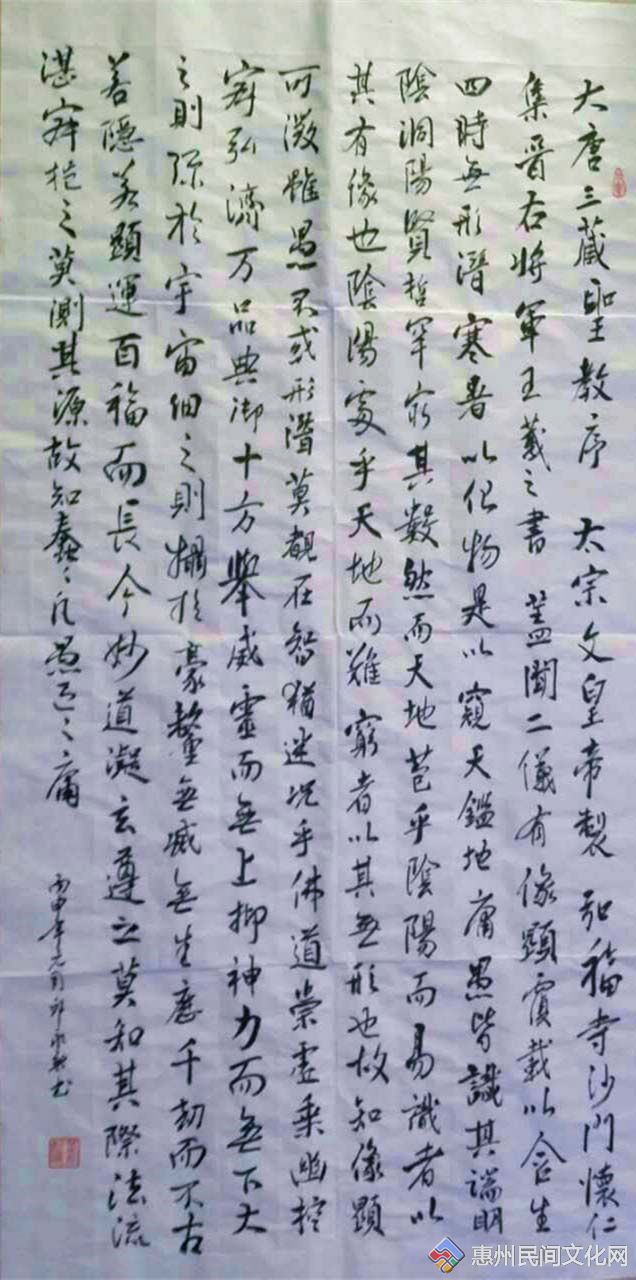 大唐三藏聖教序 太宗文皇帝製 弘福寺沙門懷仁
集晉右將軍王羲之書 蓋聞二儀有像顯覆載以含生
四時無形潛寒暑以化物是以窺天鑑地庸愚皆識其端明
陰洞陽賢哲罕窮其數然而天地苞乎陰陽而易識者以
其有像也陰陽處乎天地而難窮者以其無形也故知像顯
可徵雖愚不惑形潛莫覩在智猶迷况乎佛道崇虛乘幽控
寂弘濟万品典御十方舉威靈而無上抑神力而無下大
之則彌於宇宙細之則攝於豪釐無滅無生歷千劫而不古
若隱若顯運百福而長今妙道凝玄遵之莫知其際法流
湛寂挹之莫測其源故知蠢〻凡愚區〻庸
丙申年元月
惠州民间文化网